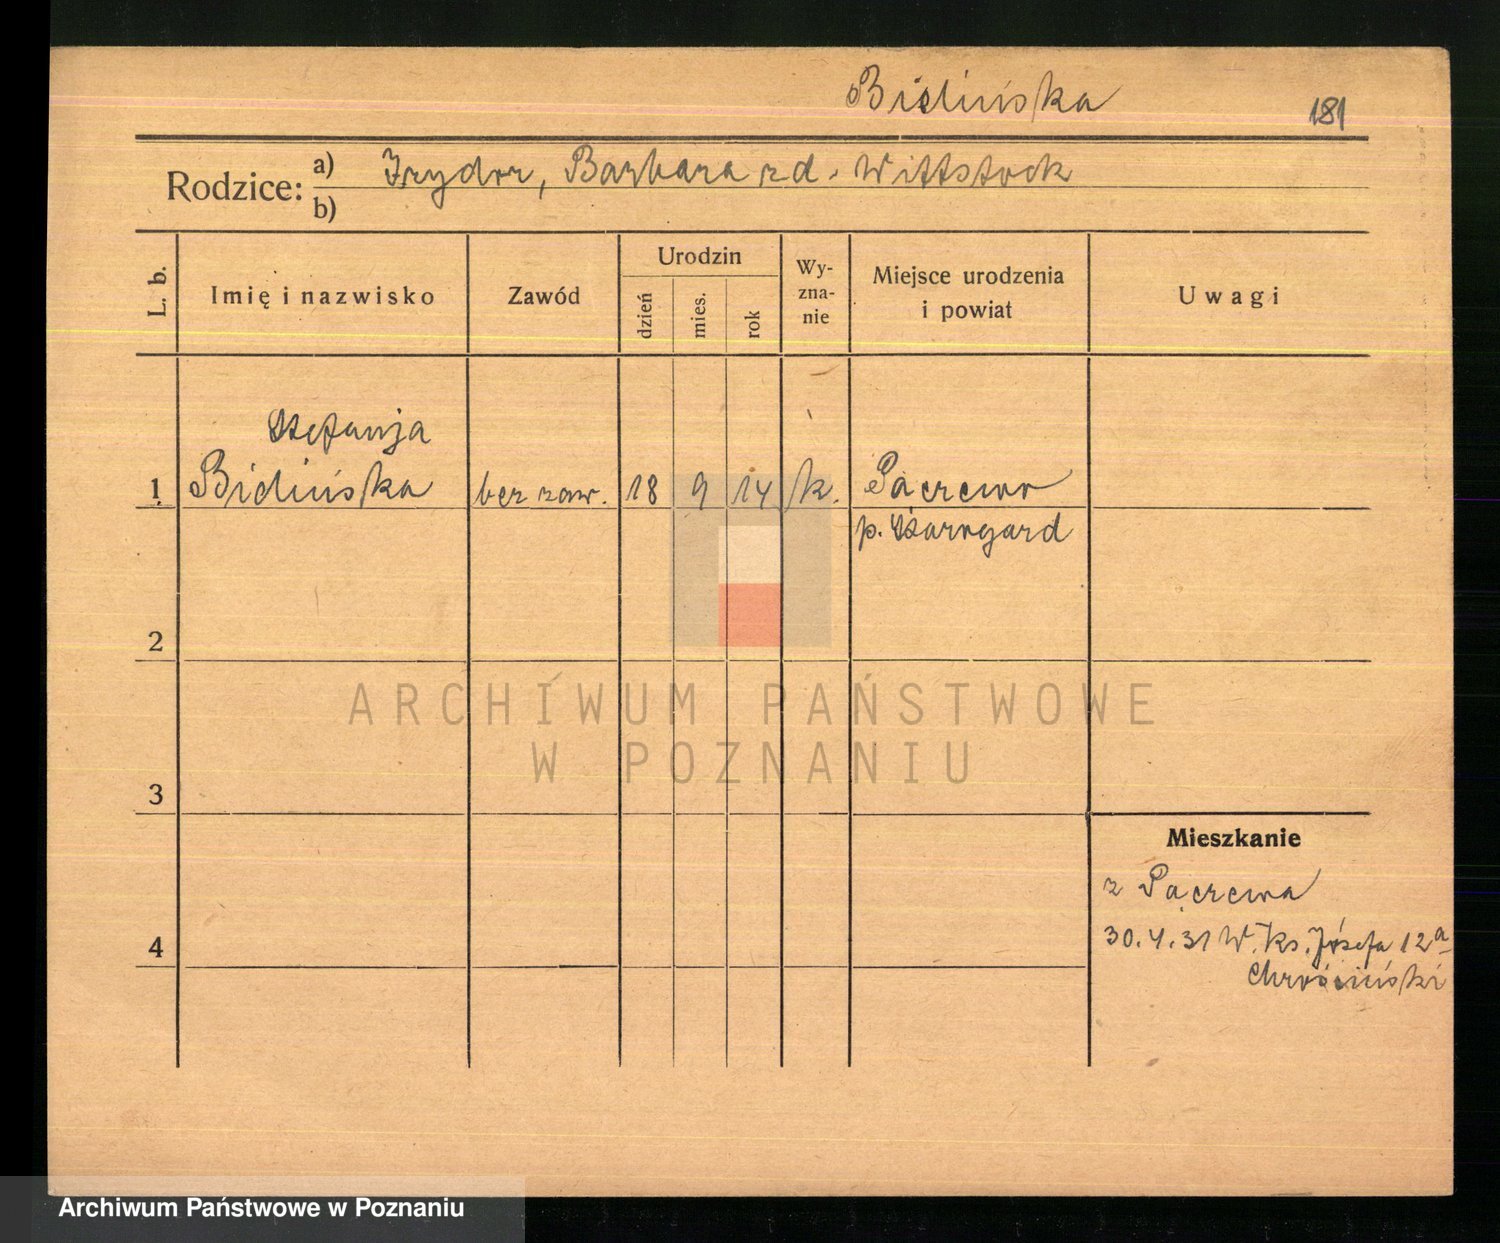 Bielińska
181
Rodzice: a) Izydor, Barbara zd. Wittstock
b)
L. b.
Imię i nazwisko
Zawód
Urodzin
dzień
mies.
rok
Wy-
zna-
nie
Miejsce urodzenia
i powiat
Uwagi
Stefanja
1 Bielińska bez zaw. 18 9 14 k. Pączewo
p. Starogard
2
3
4
Mieszkanie
z Pączewa
30.4.31 W. Ks. Józefa 12a
Chrościński
ARCHIWUM PAŃSTWOWE
W POZNANIU
Archiwum Państwowe w Poznaniu